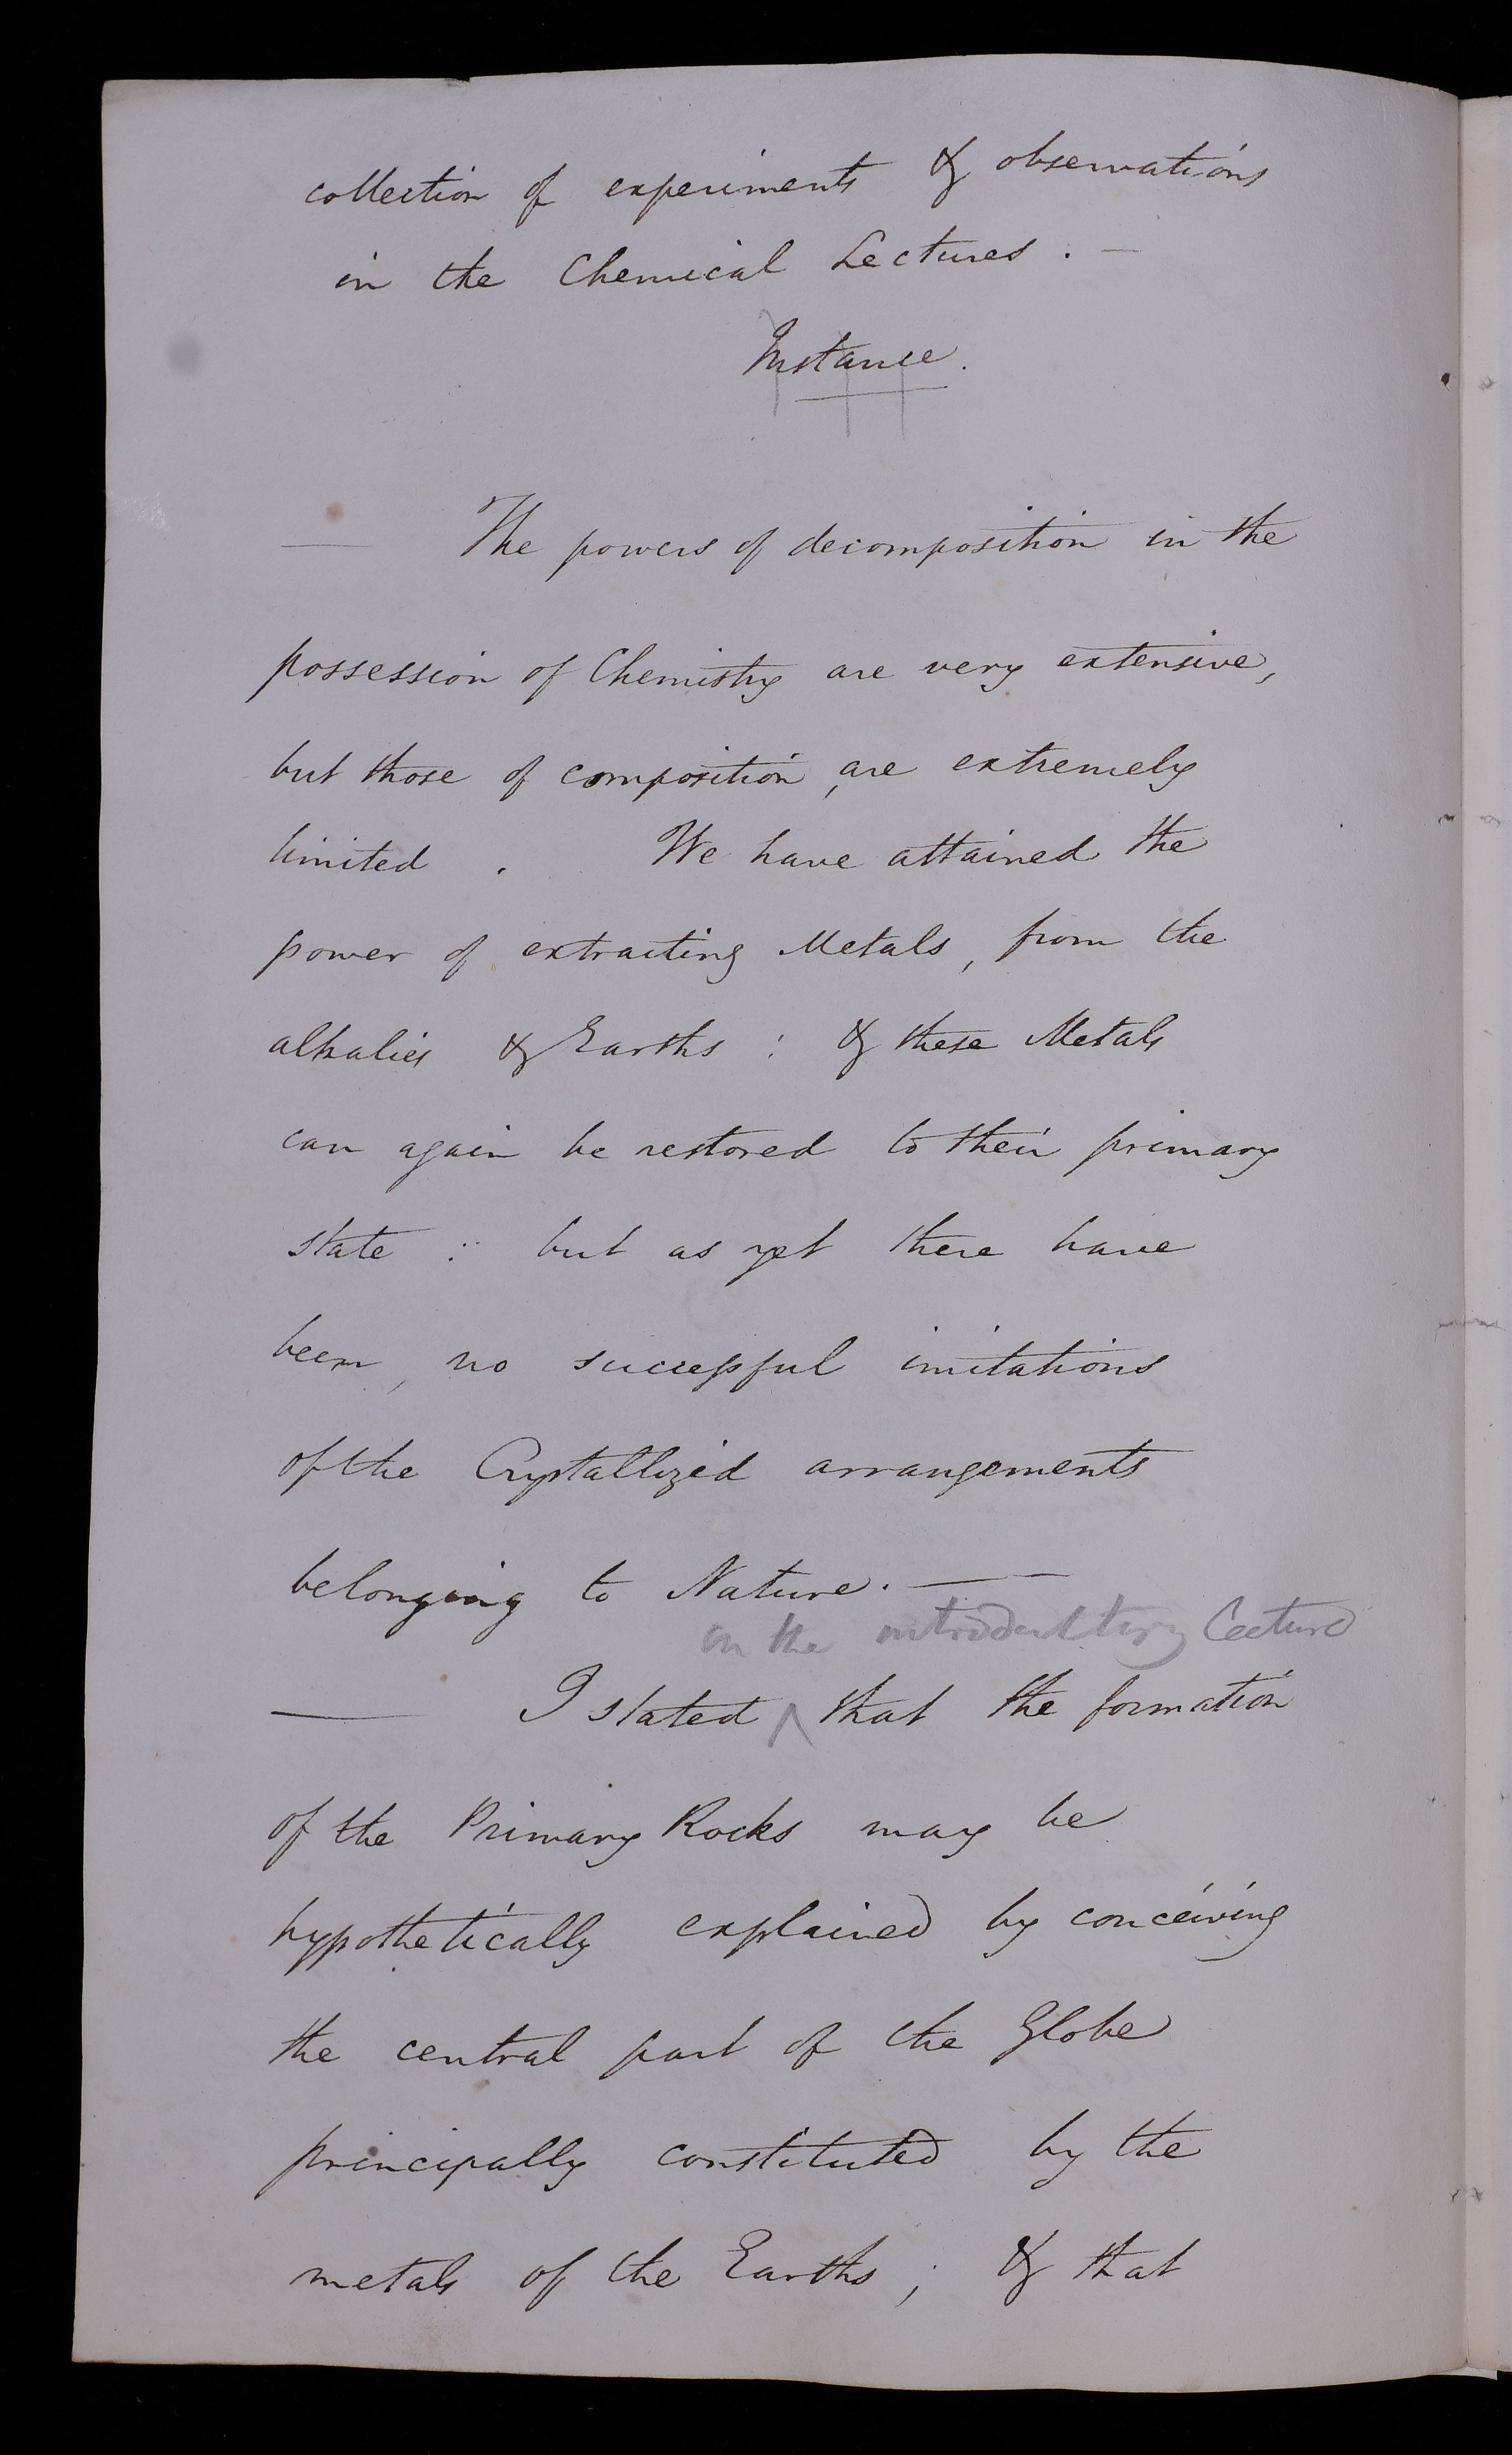 collection of experiments & observations
in the Chemical Lectures. —
Instance.
— The powers of decomposition in the
possession of Chemistry are very extensive,
but those of composition, are extremely
limited. We have attained the
power of extracting Metals, from the
alkalies & Earths: & these Metals
can again be restored to their primary
state: but as yet there have
been, no successful imitations
of the Crystallized arrangements
belonging to Nature. — —
in the introductory Lecture
— I stated ^ that the formation
of the Primary Rocks may be
hypothetically explained by conceiving
the central part of the Globe
principally constituted by the
metals of the Earths; & that